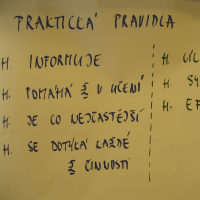 PRAKTICKÁ PRAVIDLA
H. INFORMUJE
H. POMÁHÁ Ž V UČENÍ
H. JE CO NEJČASTĚJŠÍ
H. SE DOTÝKÁ KAŽDÉ
Ž ČINNOSTI
H.
H.
H. EF